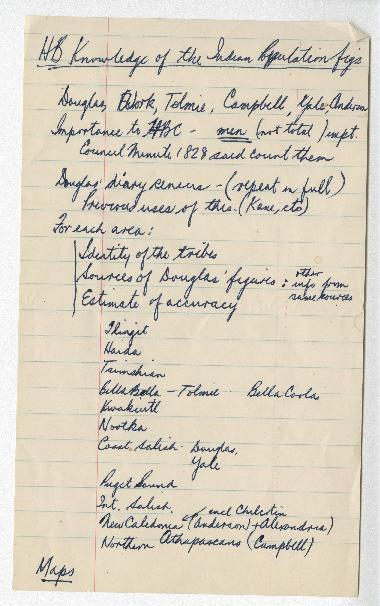 HB Knowledge of the Indian Population figs
Douglas, Work, Tolmie, Campbell, Yale, Anderson
Importance to HBC - men (not total) impt.
Council Minute 1828 said count them
Douglas' diary census - (repeat in full)
Previous uses of this. (Kane, etc)
For each area:
Identity of the tribes
Sources of Douglas' figures : other info from same sources
Estimate of accuracy
Tlingit
Haida
Tsimshian
Bella Bella - Tolmie - Bella Coola
Kwakiutl
Nootka
Coast Salish - Douglas,
Yale
Puget Sound
Int. Salish.
New Caledonia (Anderson) + Alexandria) incl Chilcotin
Northern Athapascans (Campbell)
Maps